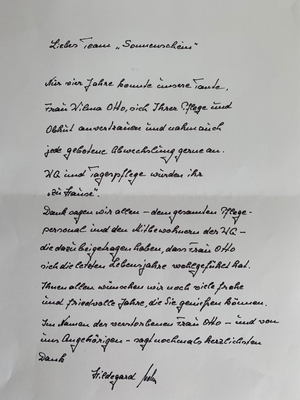 Liebes Team „Sonnenschein"
Nur vier Jahre konnte unsere Tante,
Frau Wilma Otto, sich Ihrer Pflege und
Obhut anvertrauen und nahm auch
jede gebotene Abwechslung gerne an.
WG und Tagespflege wurden ihr
„zu Hause".
Dank sagen wir allen – dem gesamten Pflege-
personal und den Mitbewohnern der WG –
die dazu beigetragen haben, dass Frau Otto
sich die letzten Lebensjahre wohlgefühlt hat.
Ihnen allen wünschen wir noch viele frohe
und friedvolle Jahre, die Sie genießen können.
Im Namen der verstorbenen Frau Otto – und von
uns Angehörigen – sagt nochmals herzlichsten
Dank
Hildegard